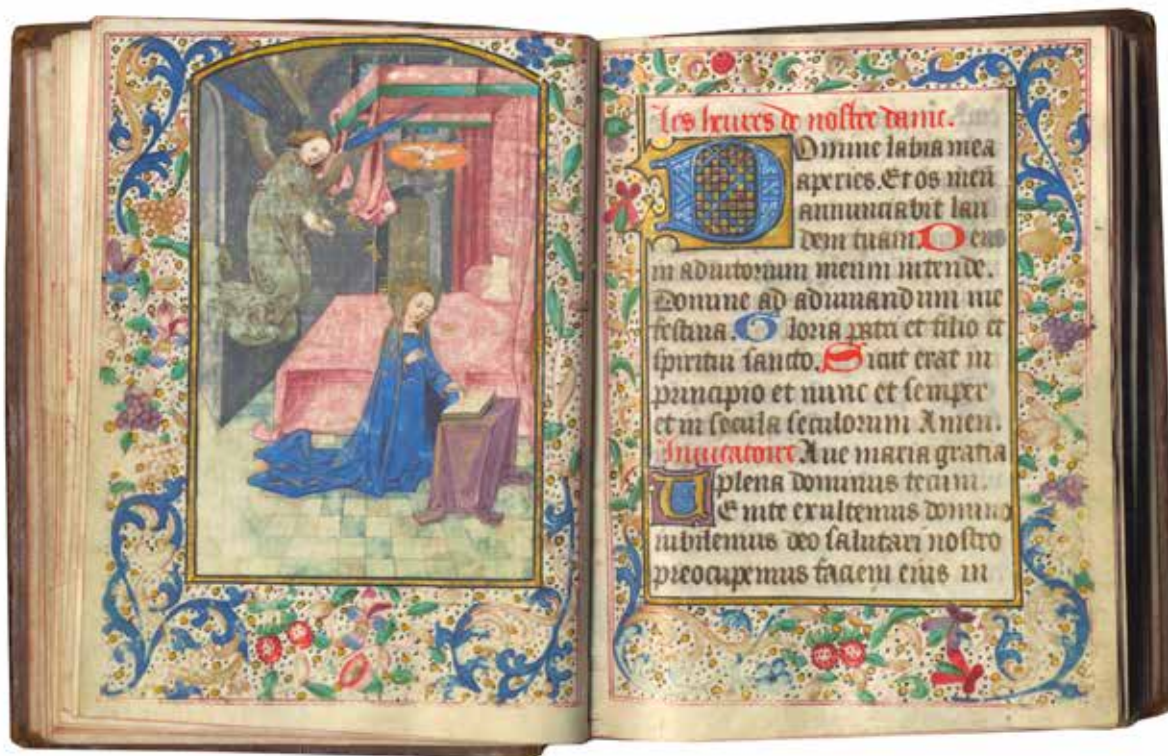 Les heures de nostre dame.
Domine labia mea
aperies. Et os meū
annunciabit lau
dem tuam. Deus
in adiutorium meum intende.
Domine ad adiuuandum me
festina. Gloria patri et filio et
spiritui sancto. Sicut erat in
principio et nunc et semper
et in secula seculorum Amen.
Inuitatoire Aue maria gratia
plena dominus tecum.
Uenite exultemus domino
iubilemus deo salutari nostro
preocupemus faciem eius in